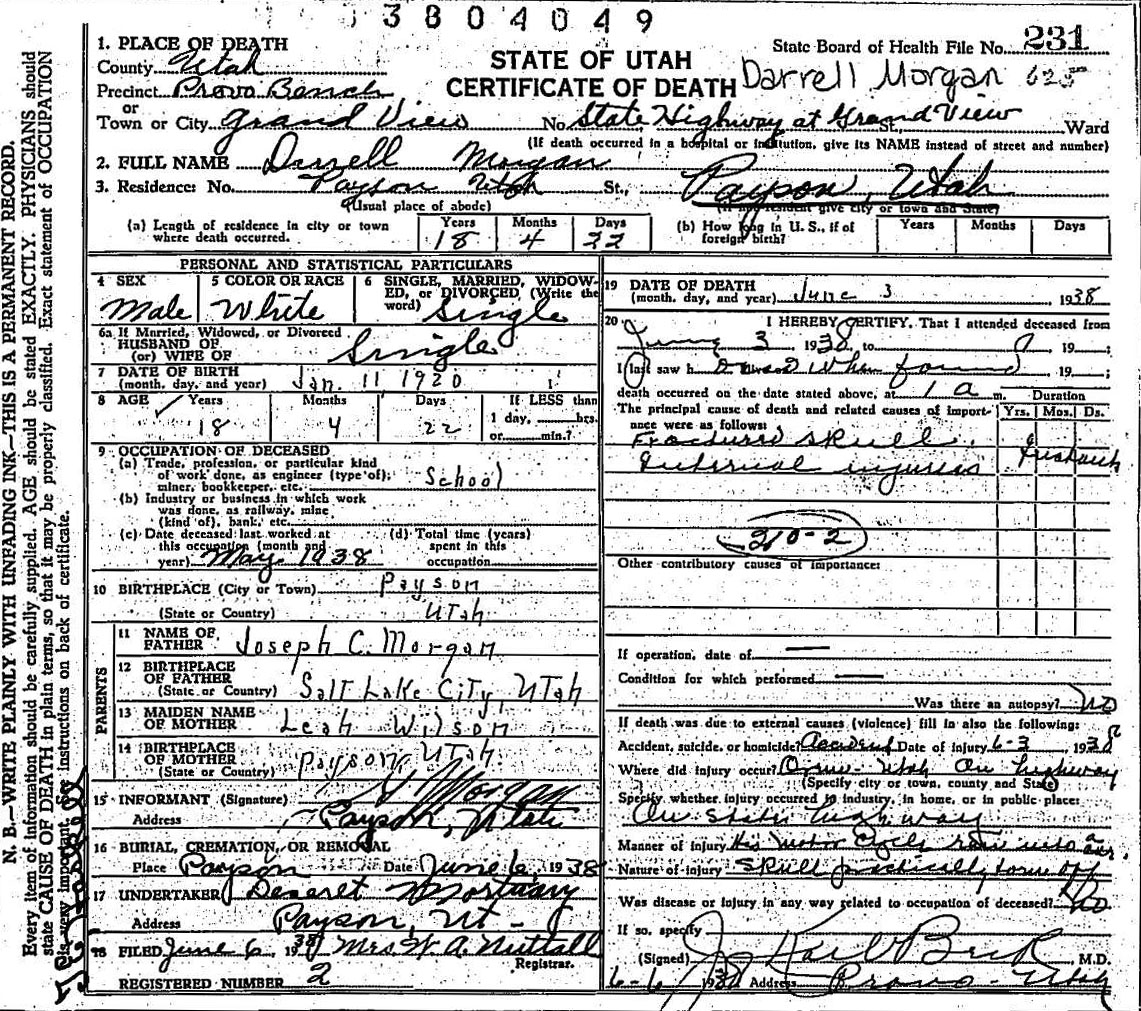 3804049
1. PLACE OF DEATH
County Utah
Precinct Provo Bench
or
Town or City Grand View No. State Highway at Grand View St., Ward
STATE OF UTAH
CERTIFICATE OF DEATH
State Board of Health File No. 231
Darrell Morgan 625
(If death occurred in a hospital or institution, give its NAME instead of street and number)
2. FULL NAME Darrell Morgan
3. Residence: No. Payson Utah St., Payson, Utah
(Usual place of abode) (If non resident give city or town and State)
(a) Length of residence in city or town where death occurred. Years 18 Months 4 Days 22
(b) How long in U. S., if of foreign birth? Years Months Days
PERSONAL AND STATISTICAL PARTICULARS
4 SEX Male
5 COLOR OR RACE White
6 SINGLE, MARRIED, WIDOWED, or DIVORCED, (Write the word) Single
6a If Married, Widowed, or Divorced
HUSBAND OF
(or) WIFE OF Single
7 DATE OF BIRTH
(month, day, and year) Jan. 11 1920
8 AGE Years 18 Months 4 Days 22 If LESS than 1 day, hrs. or min.?
9 OCCUPATION OF DECEASED
(a) Trade, profession, or particular kind
of work done, as engineer (type of),
miner, bookkeeper, etc. School
(b) Industry or business in which work
was done, as railway, mine
(kind of), bank, etc.
(c) Date deceased last worked at
this occupation (month and
year) May 1938
(d) Total time (years)
spent in this
occupation
10 BIRTHPLACE (City or Town) Payson
(State or Country) Utah
PARENTS
11 NAME OF
FATHER Joseph C. Morgan
12 BIRTHPLACE
OF FATHER
(State or Country) Salt Lake City, Utah
13 MAIDEN NAME
OF MOTHER Leah Wilson
14 BIRTHPLACE
OF MOTHER
(State or Country) Payson, Utah
15 INFORMANT (Signature) Morgan
Address Payson, Utah
16 BURIAL, CREMATION, OR REMOVAL
Place Payson Date June 6, 1938
17 UNDERTAKER Deseret Mortuary
Address Payson, Ut-
18 FILED June 6 1938 Mrs. W. A. Nuttall
Registrar.
REGISTERED NUMBER 2
19 DATE OF DEATH
(month, day, and year) June 3 1938
20 I HEREBY CERTIFY, That I attended deceased from
June 3 1938 to , 19 ;
I last saw h Dead when found , 19 ;
death occurred on the date stated above, at 1 a m. Duration
The principal cause of death and related causes of importance were as follows: Yrs. Mos. Ds.
Fractured skull
Internal injuries
210-2
Other contributory causes of importance:
If operation, date of
Condition for which performed
Was there an autopsy? No
If death was due to external causes (violence) fill in also the following:
Accident, suicide, or homicide? Accident Date of injury 6-3, 1938
Where did injury occur? Utah On highway
(Specify city or town, county and State)
Specify whether injury occurred in industry, in home, or in public place:
On state highway
Manner of injury His Motor Cycle ran into a car.
Nature of injury Skull practically torn off
Was disease or injury in any way related to occupation of deceased? No
If so, specify
(Signed) J. Karl Beck M.D.
6-6 1938 Address Provo - Utah
N. B.—WRITE PLAINLY WITH UNFADING INK—THIS IS A PERMANENT RECORD.
Every item of information should be carefully supplied. AGE should be stated EXACTLY. PHYSICIANS should
state CAUSE OF DEATH in plain terms, so that it may be properly classified. Exact statement of OCCUPATION
is very important. See instructions on back of certificate.